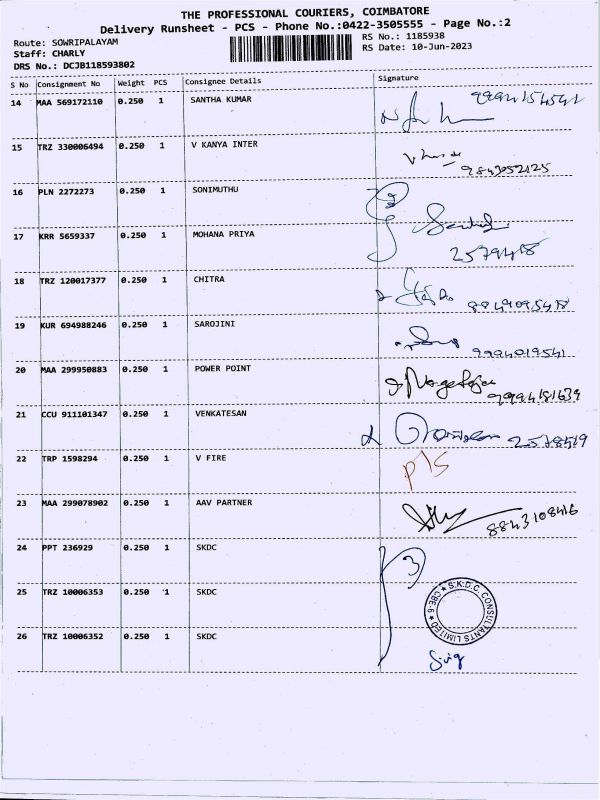 THE PROFESSIONAL COURIERS, COIMBATORE
Delivery Runsheet - PCS - Phone No.:0422-3505555 - Page No.:2
Route: SOWRIPALAYAM
Staff: CHARLY
DRS No.: DCJB118593802
RS No.: 1185938
RS Date: 10-Jun-2023
S No Consignment No Weight PCS Consignee Details Signature
14 MAA 569172110 0.250 1 SANTHA KUMAR
15 TRZ 330006494 0.250 1 V KANYA INTER
9843052125
16 PLN 2272273 0.250 1 SONIMUTHU
17 KRR 5659337 0.250 1 MOHANA PRIYA
2579418
18 TRZ 120017377 0.250 1 CHITRA
19 KUR 694988246 0.250 1 SAROJINI
9994019541
20 MAA 299950883 0.250 1 POWER POINT
9994181639
21 CCU 911101347 0.250 1 VENKATESAN
22 TRP 1598294 0.250 1 V FIRE
23 MAA 299078902 0.250 1 AAV PARTNER
8843108416
24 PPT 236929 0.250 1 SKDC
3
25 TRZ 10006353 0.250 1 SKDC
S.K.D.C. CONSULTANTS LIMITED ★ CBE-6 ★
26 TRZ 10006352 0.250 1 SKDC